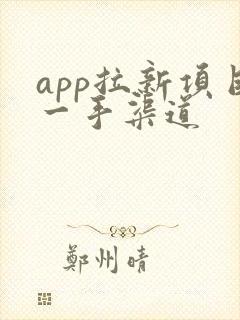 app拉新項目
一手渠道
鄭州晴